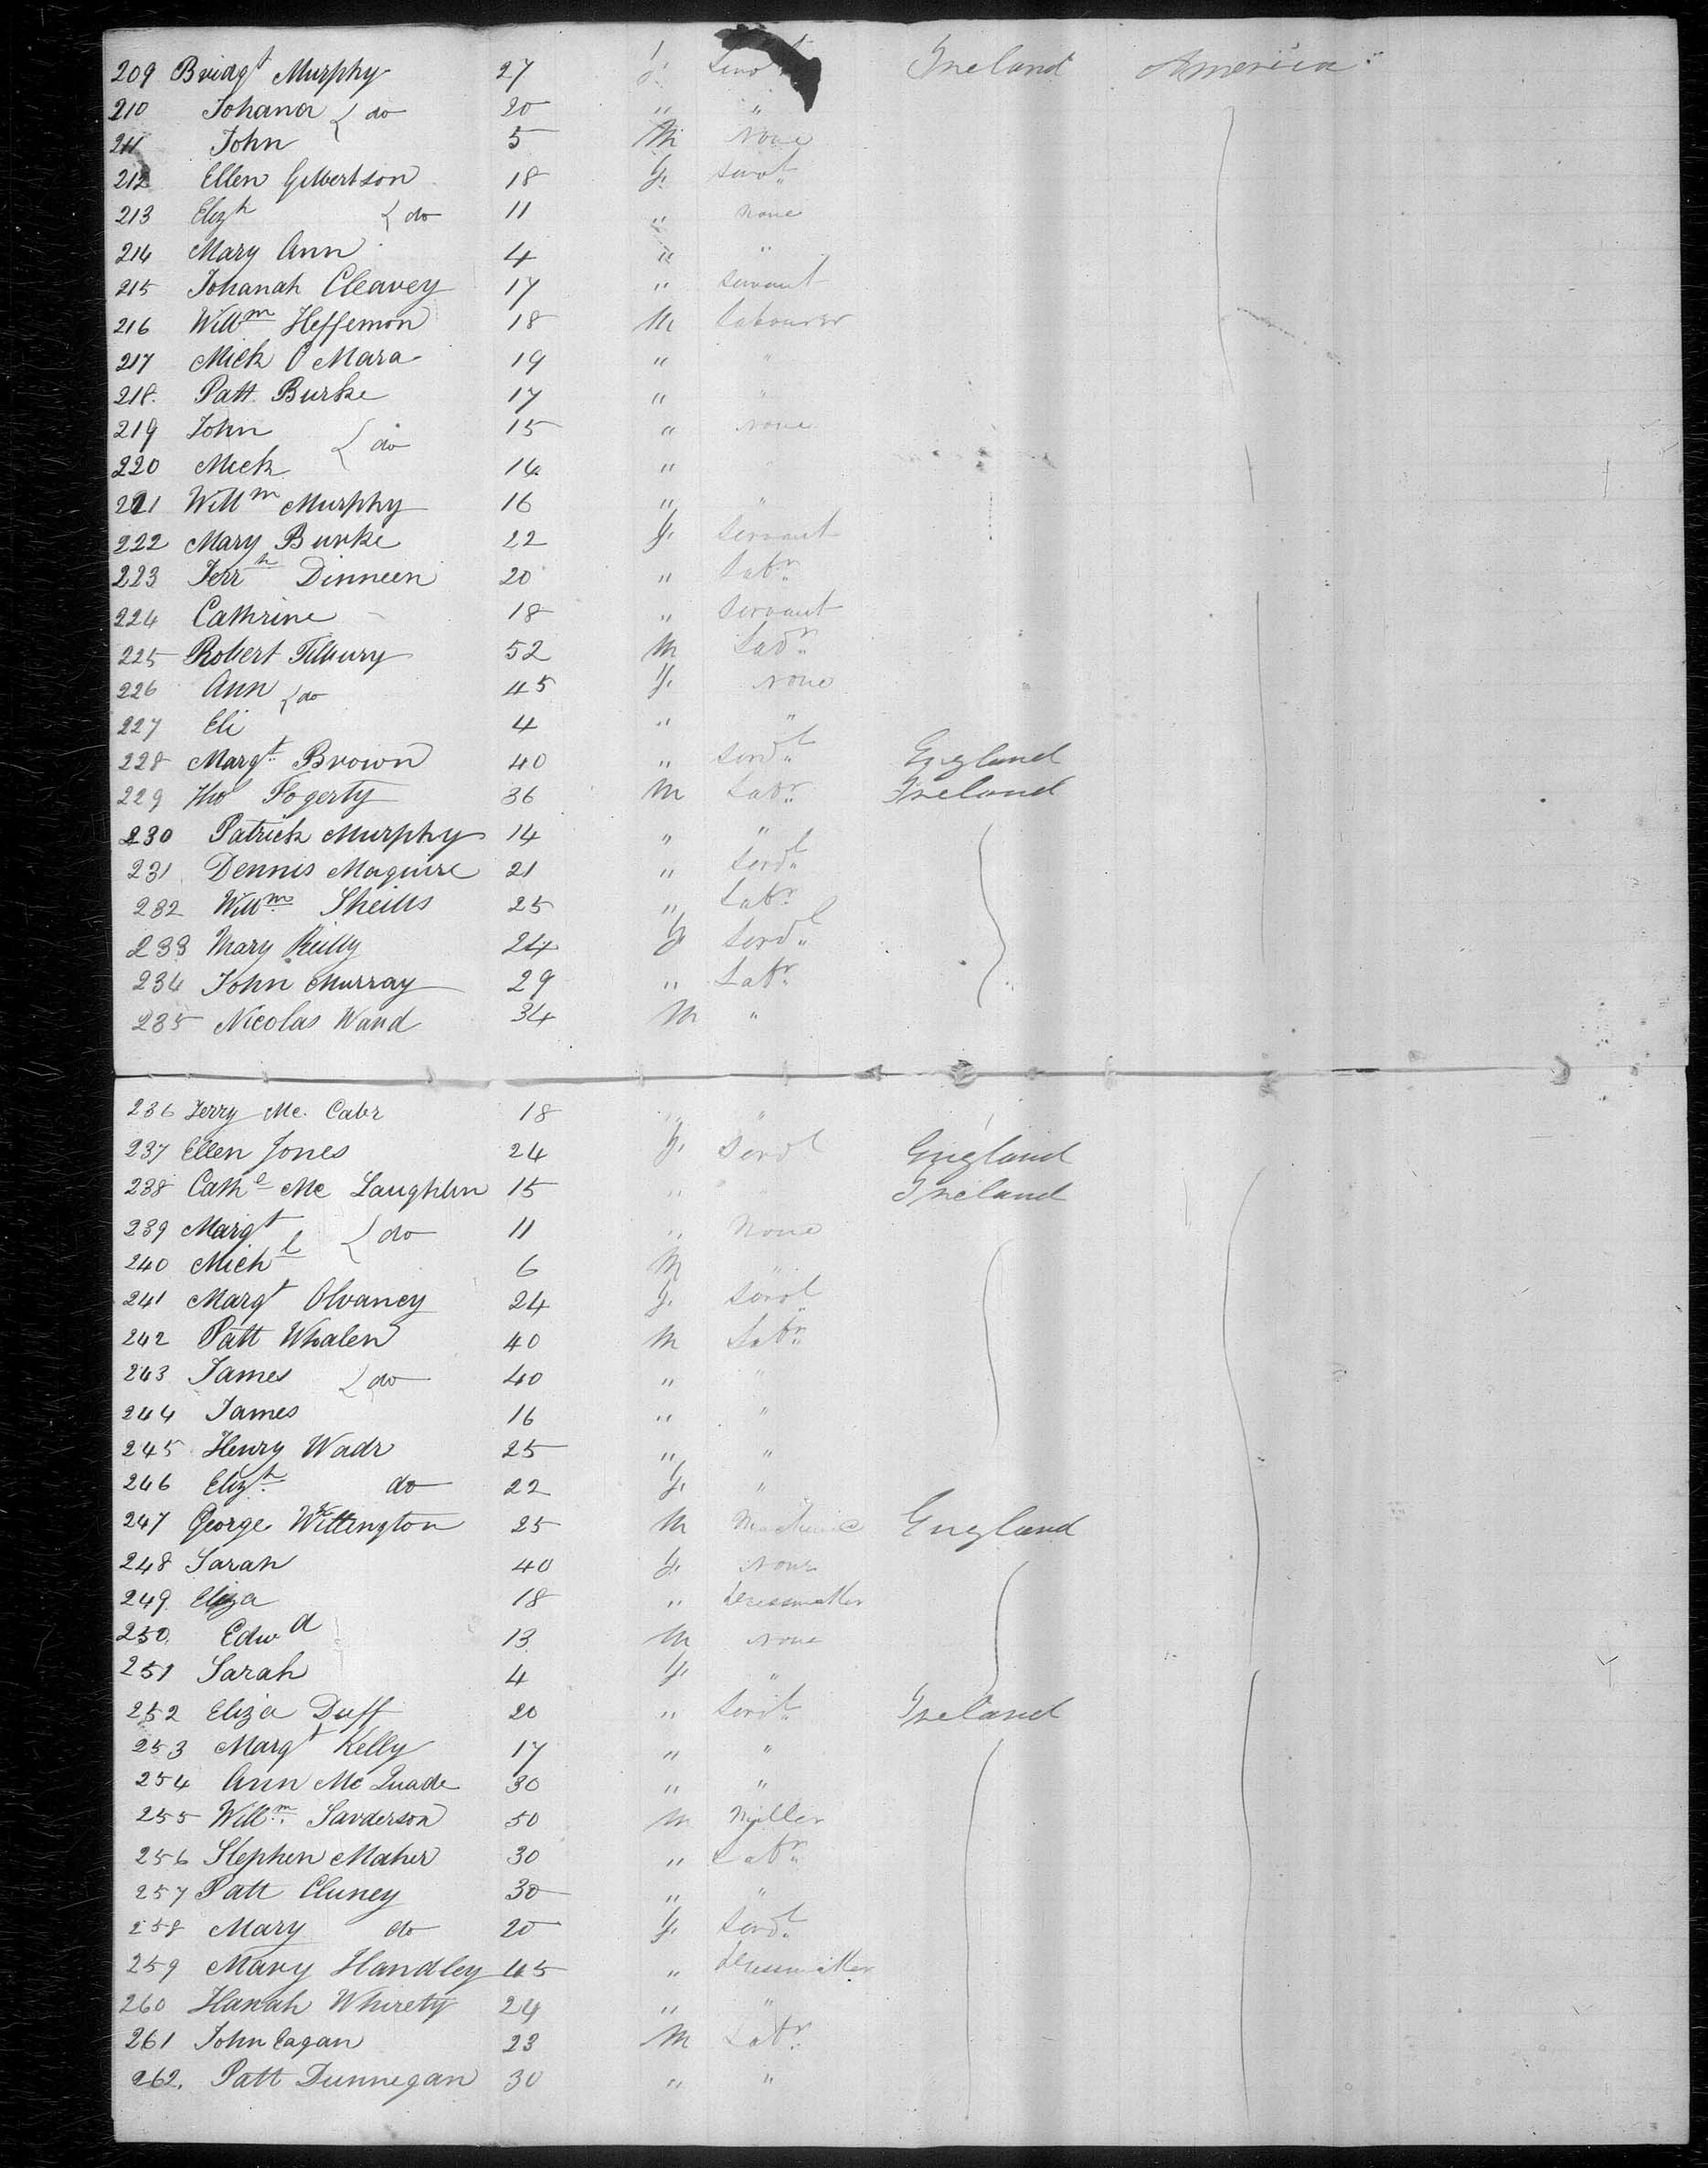 209 Bridgt Murphy 27 f. Servt Ireland America
210 Johana { do 20 " "
211 John 5 M None
212 Ellen Gilbertson 18 f. Servt
213 Elizh { do 11 " None
214 Mary Ann 4 " "
215 Johanah Cleavey 17 " Servant
216 Willm Heffernon 18 M Labourer
217 Mich O Mara 19 " "
218. Patt Burke 17 " "
219 John 15 " None
{ do
220 Mick 14 "
221 Willm Murphy 16 " "
222 Mary Burke 22 f. Servant
223 Jerrh Dinneen 20 " Labr
224 Cathrine 18 " Servant
225 Robert Tilbury 52 M Labr
226 Ann { do 45 f. None
227 Eli 4 " "
228 Margt Brown 40 " Servt England
229 Tho Fogerty 36 M Labr Ireland
230 Patrick Murphy 14 " "
231 Dennis Maguire 21 " Servt
232 Willm Sheills 25 " Labr
233 Mary Reilly 24 f Servt
234 John Murray 29 " Labr
235 Nicolas Ward 34 M "
236 Jerry Mc. Cabe 18 " "
237 Ellen Jones 24 f. Servt England
238 Cathe Mc Laughlin 15 " " Ireland
239 Margt { do 11 " None
240 Michl 6 M "
241 Margt Olvaney 24 f. Servt
242 Patt Whalen 40 M Labr
243 James { do 40 " "
244 James 16 " "
245 Henry Wade 25 " "
246 Elizh do 22 f. "
247 George Wittington 25 M Mechanic England
248 Sarah 40 f. None
249 Eliza 18 " Dressmaker
250. Edwd 13 M None
251 Sarah 4 f. "
252 Eliza Duff 20 " Servt Ireland
253 Margt Kelly 17 " "
254 Ann Mc Quade 30 " "
255 Willm Sanderson 50 M Miller
256 Stephen Maher 30 " Labr
257 Patt Cluney 30 " "
258 Mary do 20 f. Servt
259 Mary Handley 45 " Dressmaker
260 Hanah Whirety 24 " "
261 John Eagan 23 M Labr
262. Patt Dunnegan 30 " "